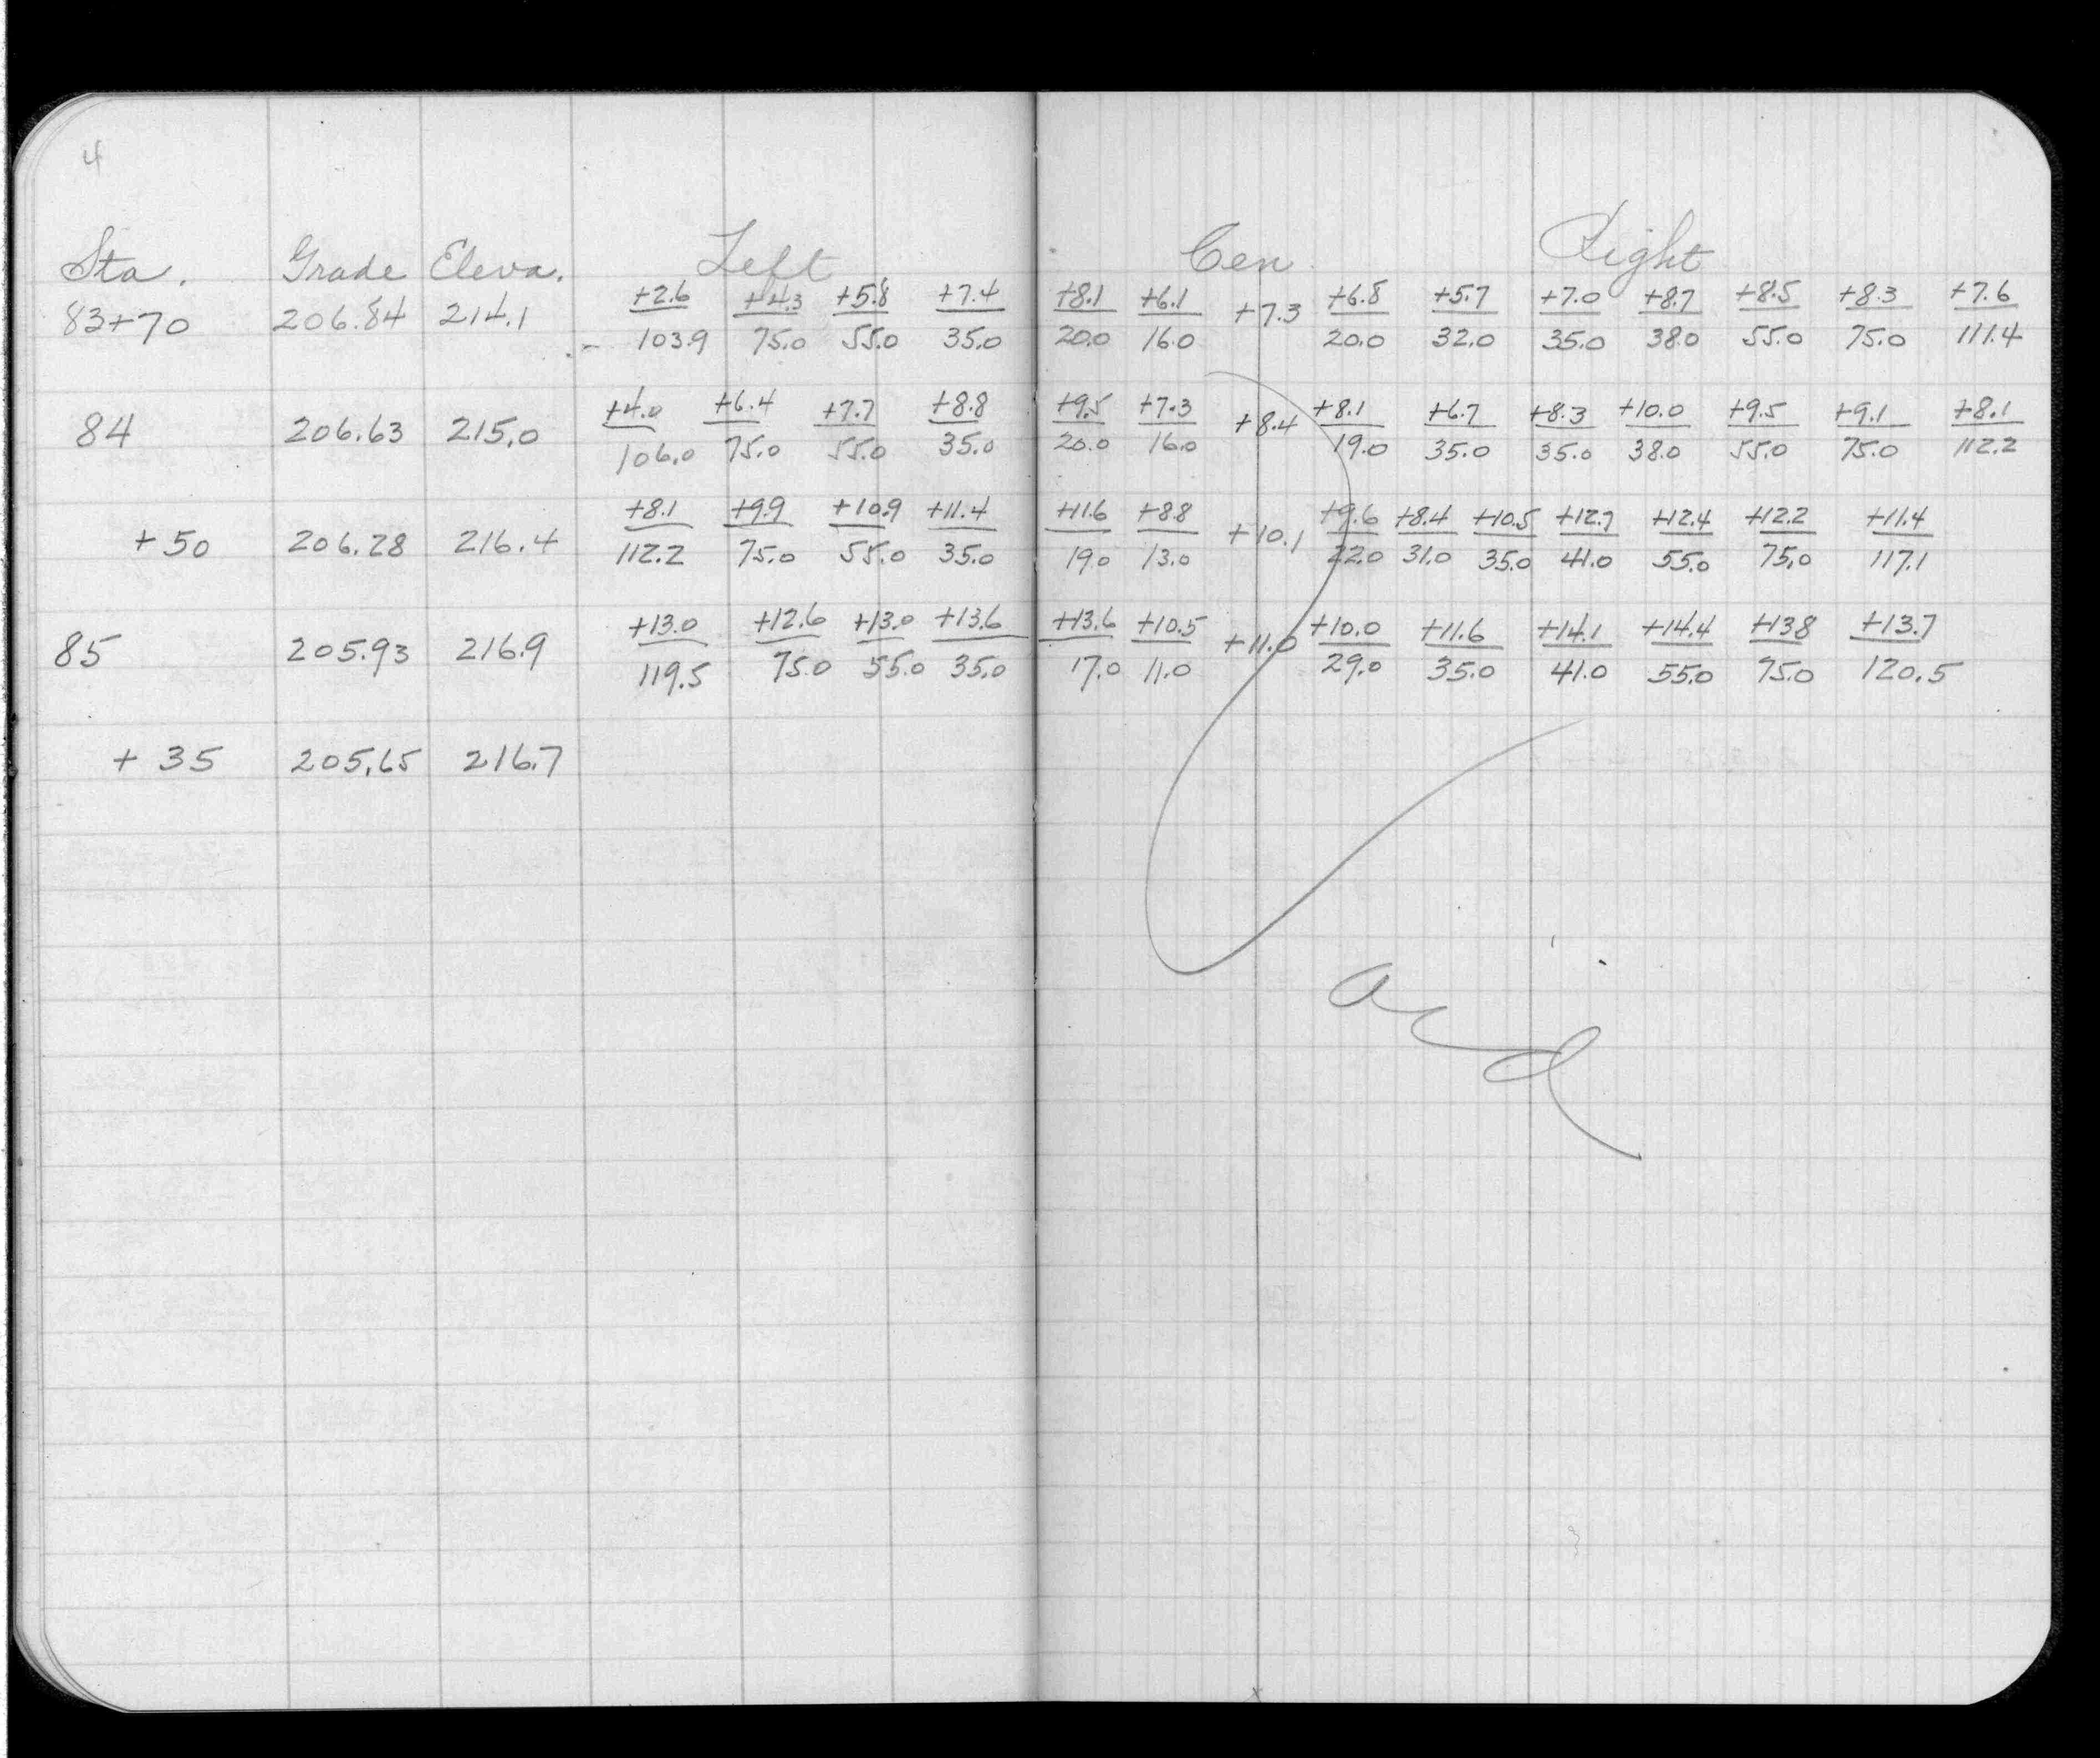 4
Sta. Grade Eleva. Left Cen Right
+2.6 +4.3 +5.8 +7.4 +8.1 +6.1 +6.8 +5.7 +7.0 +8.7 +8.5 +8.3 +7.6
83+70 206.84 214.1 +7.3
103.9 75.0 55.0 35.0 20.0 16.0 20.0 32.0 35.0 38.0 55.0 75.0 111.4
+4.0 +6.4 +7.7 +8.8 +9.5 +7.3 +8.1 +6.7 +8.3 +10.0 +9.5 +9.1 +8.1
84 206.63 215.0 +8.4
106.0 75.0 55.0 35.0 20.0 16.0 19.0 35.0 35.0 38.0 55.0 75.0 112.2
+8.1 +9.9 +10.9 +11.4 +11.6 +8.8 +9.6 +8.4 +10.5 +12.7 +12.4 +12.2 +11.4
+50 206.28 216.4 +10.1
112.2 75.0 55.0 35.0 19.0 13.0 22.0 31.0 35.0 41.0 55.0 75.0 117.1
+13.0 +12.6 +13.0 +13.6 +13.6 +10.5 +10.0 +11.6 +14.1 +14.4 +13.8 +13.7
85 205.93 216.9 +11.0
119.5 75.0 55.0 35.0 17.0 11.0 29.0 35.0 41.0 55.0 75.0 120.5
+35 205.65 216.7
Void